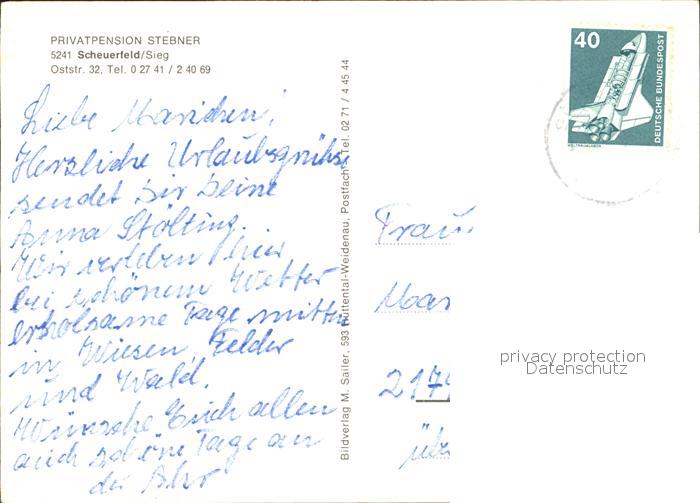 PRIVATPENSION STEBNER
5241 Scheuerfeld/Sieg
Oststr. 32, Tel. 0 27 41 / 2 40 69
Liebe Mariechen!
Herzliche Urlaubsgrüße
sendet Dir Deine
Anna Stölting.
Wir verleben hier
bei schönem Wetter
erholsame Tage mitten
in Wiesen, Felder
und Wald.
Wünsche Euch allen
auch schöne Tage an
der Ahr
Bildverlag M. Sailer, 593 Hüttental-Weidenau, Postfach, Tel. 02 71 / 4 45 44
40
DEUTSCHE BUNDESPOST
WELTRAUMLABOR
Frau
Mar
217
üb
privacy protection
Datenschutz